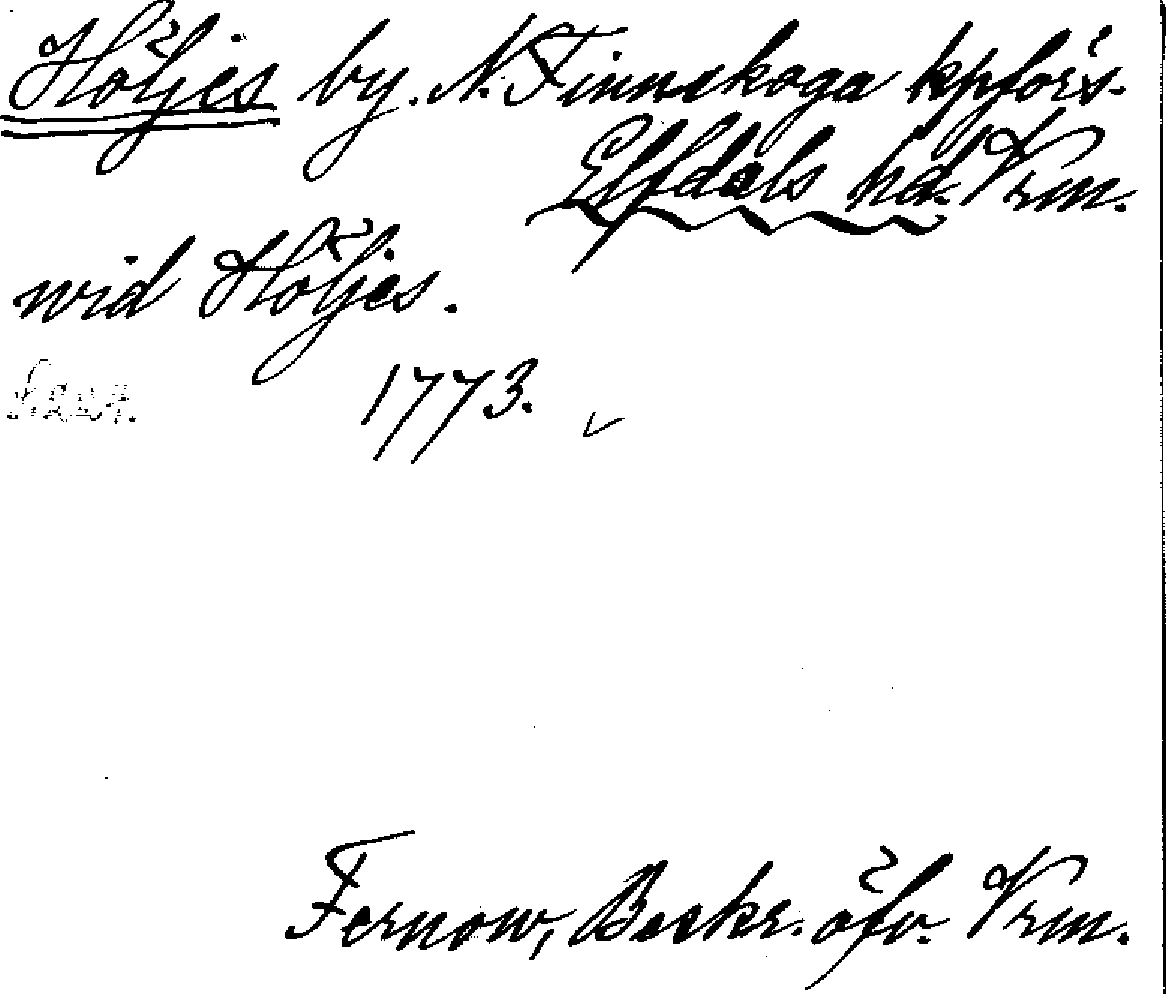 Höljes by. N. Finnskoga kpförs.
Elfdals hd. Vrm.
wid Höljes.
1773.
Fernow, Beskr. öfv. Vrm.